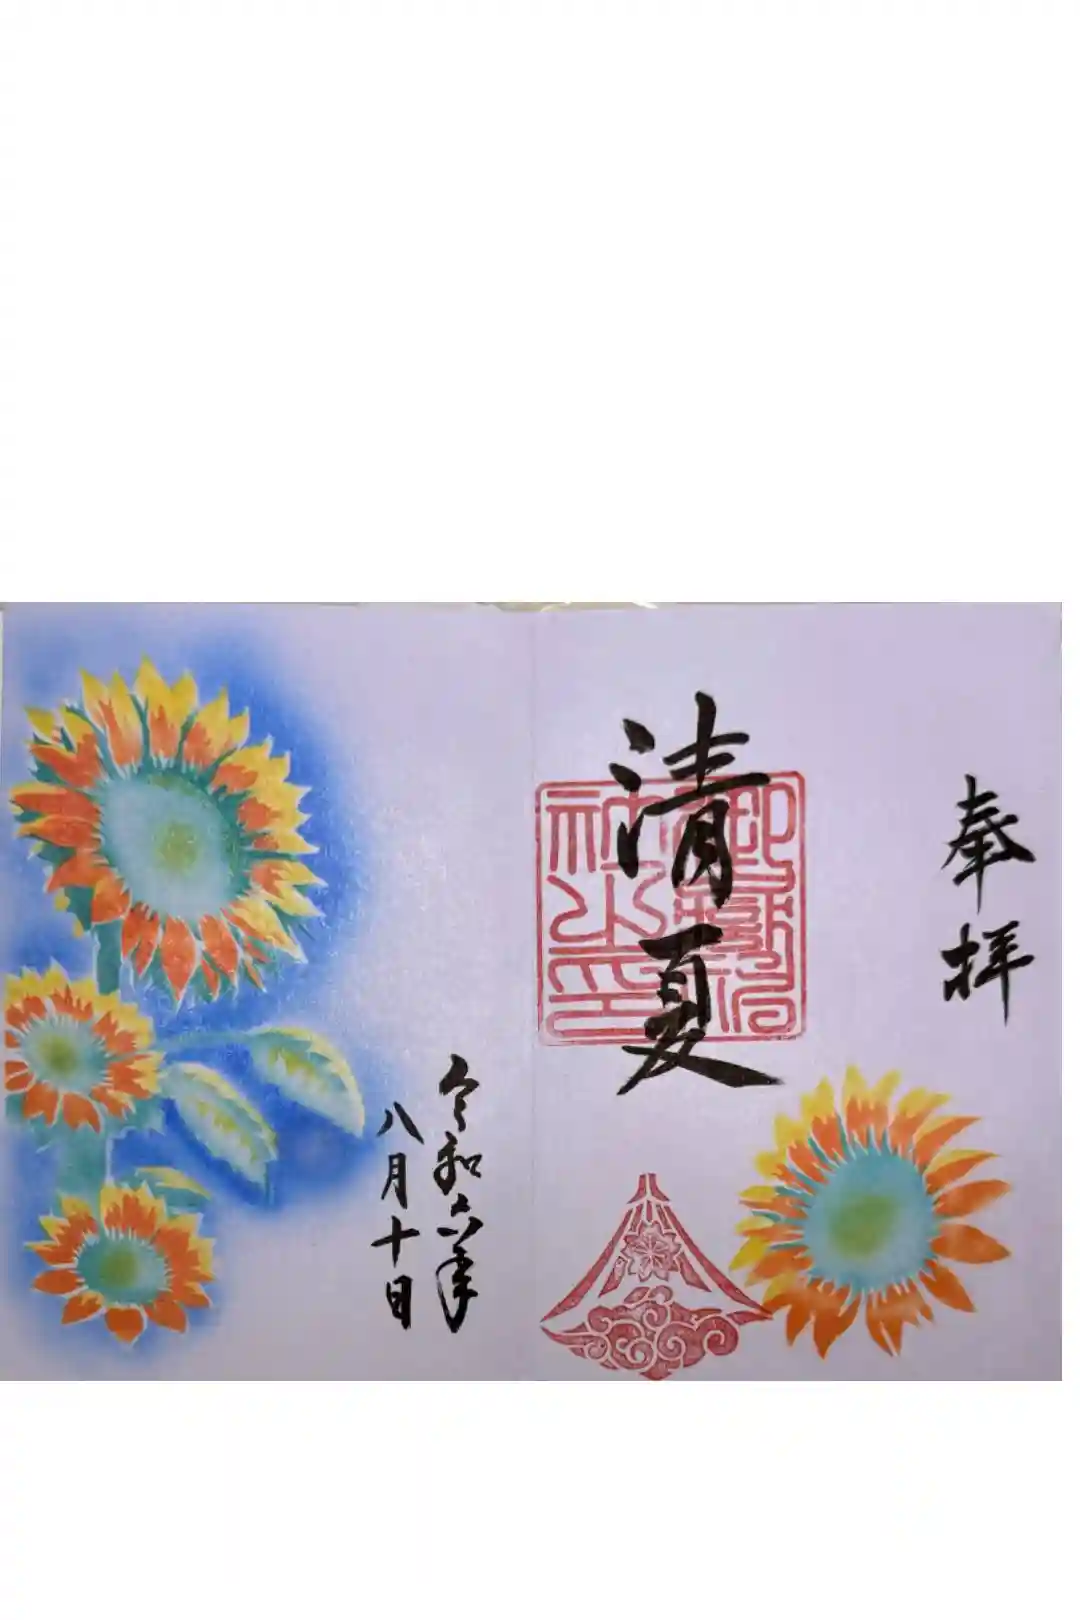 奉拝
清夏
令和六年
八月十日